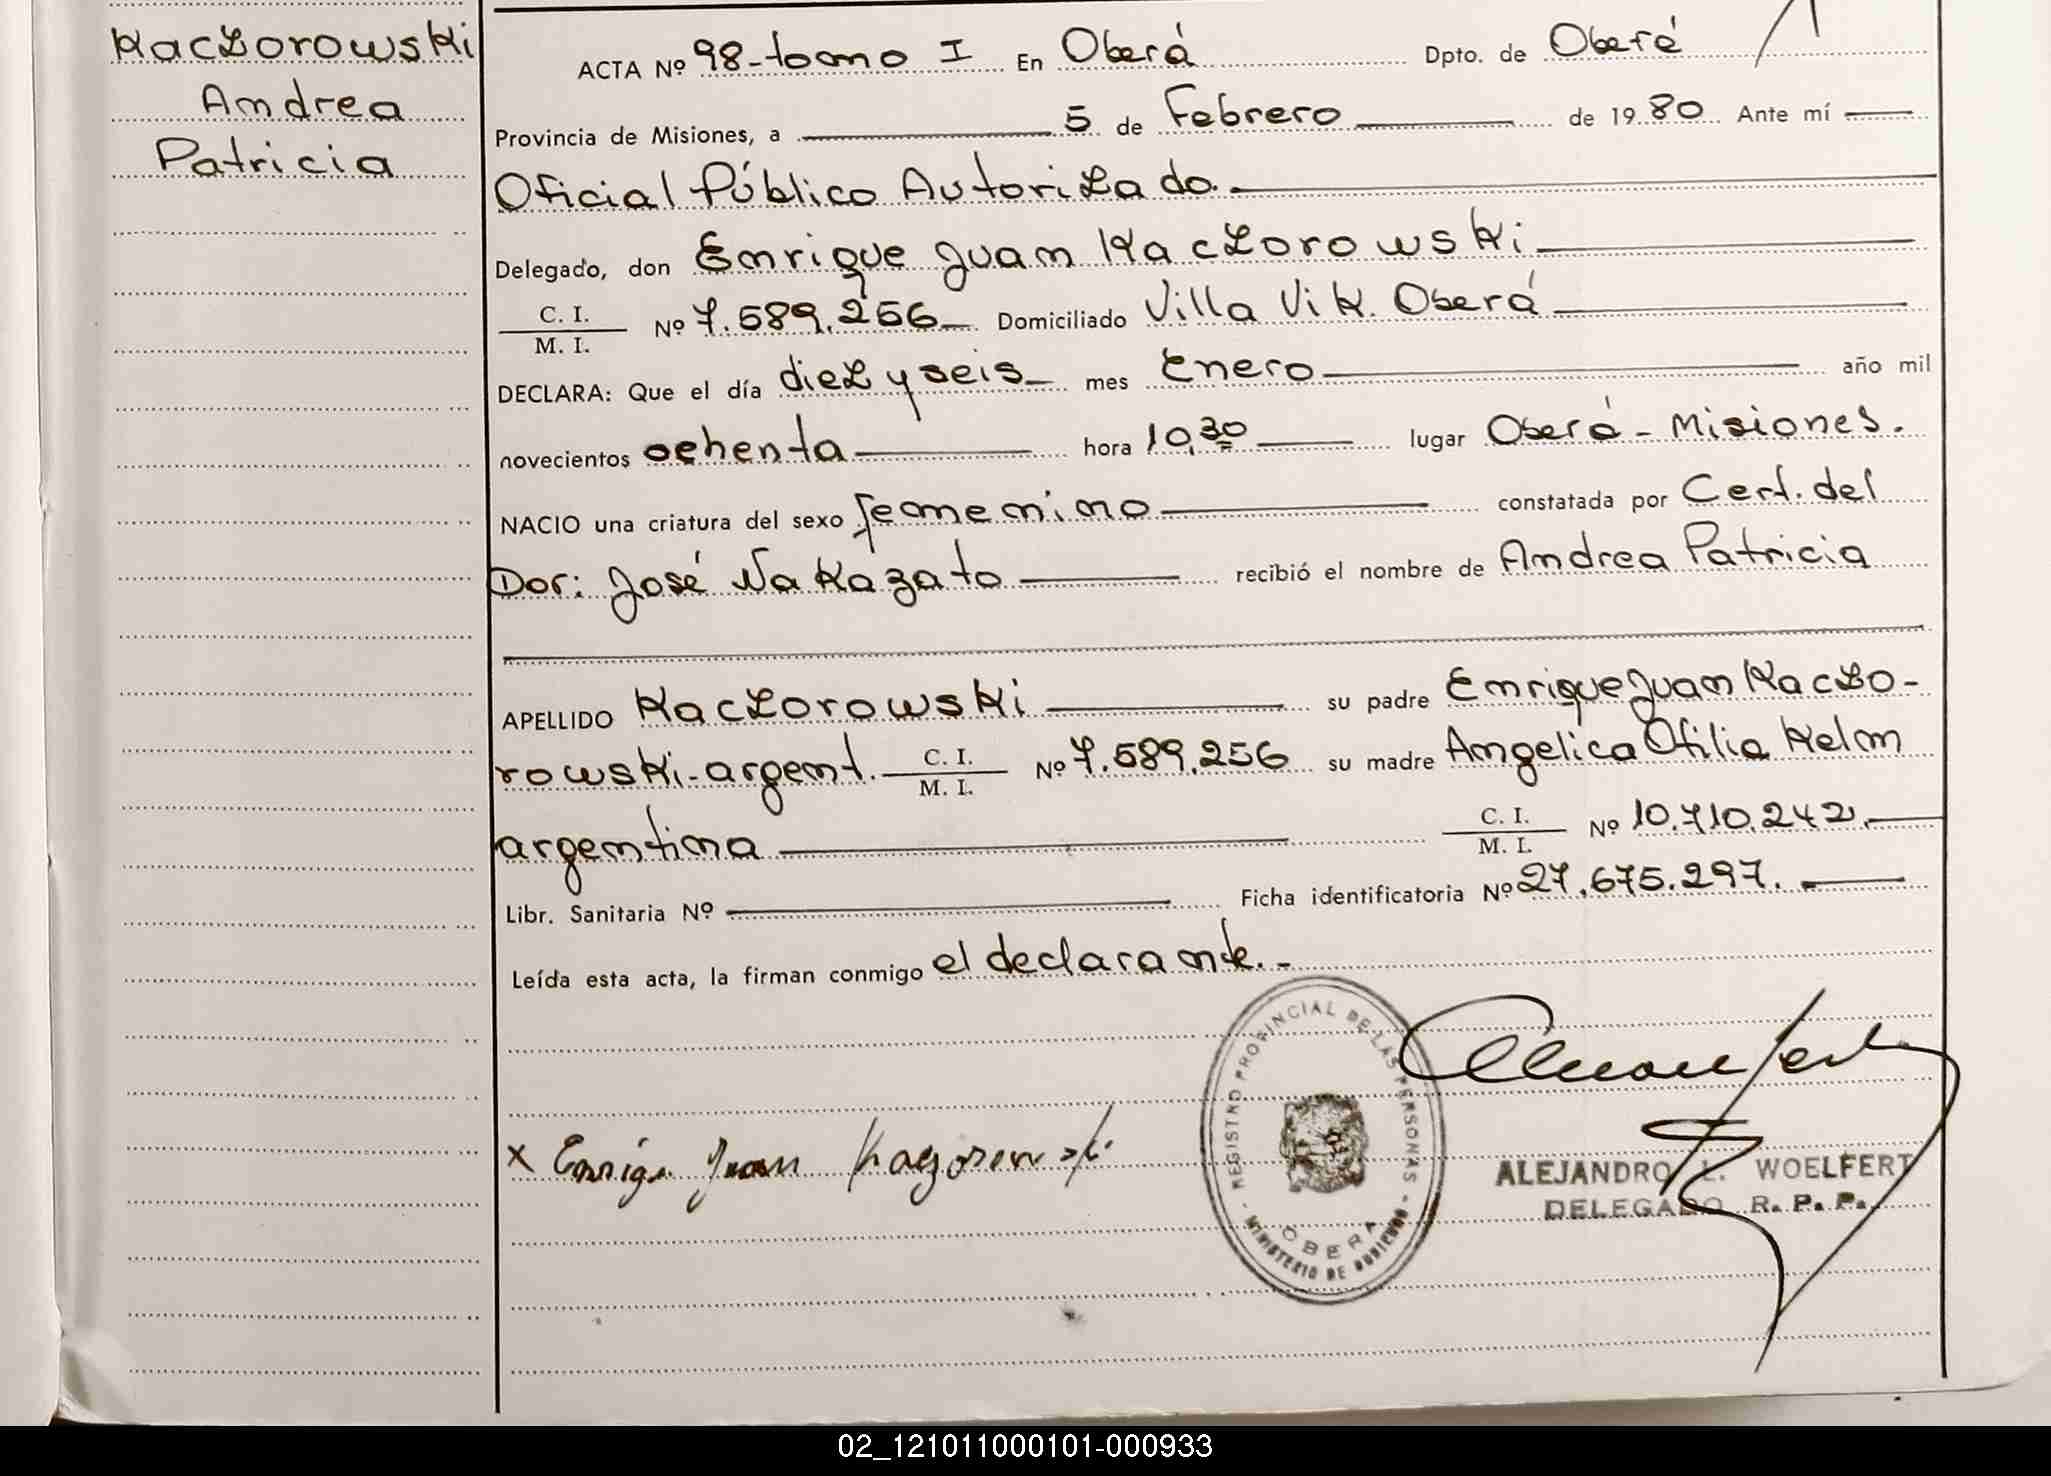 Kaczorowski
Andrea
Patricia
ACTA Nº 98-tomo I En Oberá Dpto. de Oberá
Provincia de Misiones, a 5 de Febrero de 1980 Ante mí
Oficial Público Autorizado.
Delegado, don Enrique Juan Kaczorowski
C. I.
M. I. Nº 7.589.256 Domiciliado Villa Vik. Oberá
DECLARA: Que el día diez y seis mes Enero año mil
novecientos ochenta hora 10,30 lugar Oberá - Misiones.
NACIO una criatura del sexo femenino constatada por Cert. del
Dor: José Nakazato recibió el nombre de Andrea Patricia
APELLIDO Kaczorowski su padre Enrique Juan Kaczo-
rowski-argent. C. I. M. I. Nº 7.589.256 su madre Angelica Ofilia Kelm
argentina C. I. M. I. Nº 10.710.242.
Libr. Sanitaria Nº Ficha identificatoria Nº 27.675.297.
Leída esta acta, la firman conmigo el declarante.-
REGISTRO PROVINCIAL DE LAS PERSONAS
OBERA
MINISTERIO DE GOBIERNO
x Enriqe Juan Kaczorowski
ALEJANDRO L. WOELFERT
DELEGADO R. P. P.
02_121011000101-000933